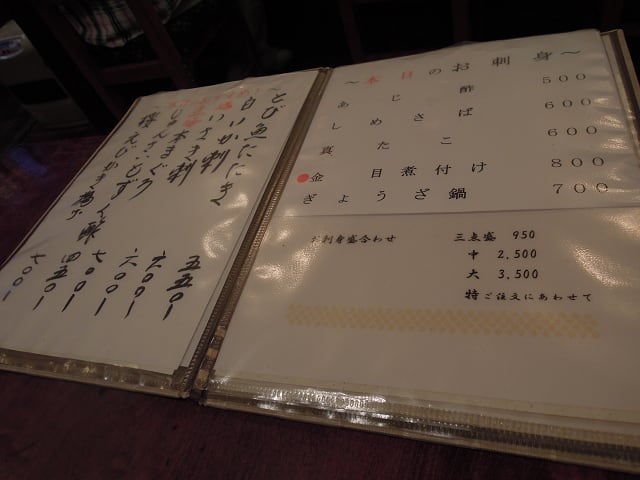 ～本日のお刺身～
あじ酢 500
しめさば 600
真たこ 600
●金目煮付け 800
ぎょうざ鍋 700
お刺身盛合わせ 三点盛 950
中 2,500
大 3,500
特ご注文にあわせて
とび魚たたき 五五〇ー
白いか刺 六〇〇ー
いさき刺 六〇〇ー
本まぐろ 七〇〇ー
じゅんさいもずく酢 四五〇ー
七〇〇ー